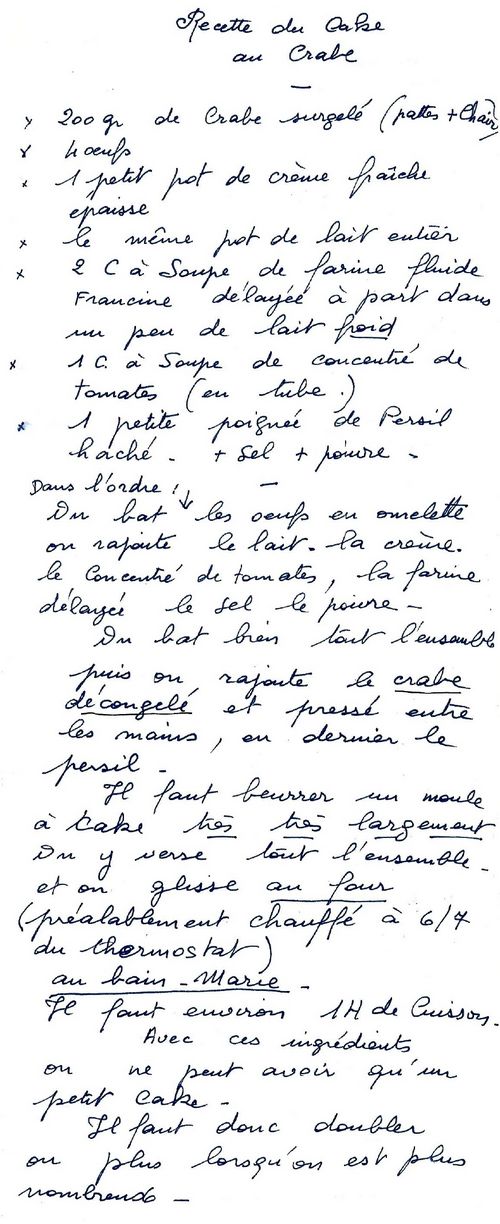 Recette du Cake
au Crabe
—
x 200 gr de Crabe surgelé (pattes + Chair)
x 4 oeufs
x 1 petit pot de crème fraîche
épaisse
x le même pot de lait entier
x 2 C à Soupe de farine fluide
Francine délayée à part dans
un peu de lait froid
x 1 C. à Soupe de concentré de
tomates (en tube.)
x 1 petite poignée de Persil
haché - + Sel + poivre -
Dans l'ordre ! ↓ —
On bat les oeufs en omelette
on rajoute le lait - la crème.
le Concentré de tomates, la farine
délayée le Sel le poivre -
On bat bien tout l'ensemble
puis on rajoute le crabe
décongelé et pressé entre
les mains, en dernier le
persil -
Il faut beurrer un moule
à Cake très très largement
On y verse tout l'ensemble -
et on glisse au four
(préalablement chauffé à 6/7
du thermostat)
au bain-Marie -
Il faut environ 1H de Cuisson.
Avec ces ingrédients
on ne peut avoir qu'un
petit Cake -
Il faut donc doubler
ou plus lorsqu'on est plus
nombreux -